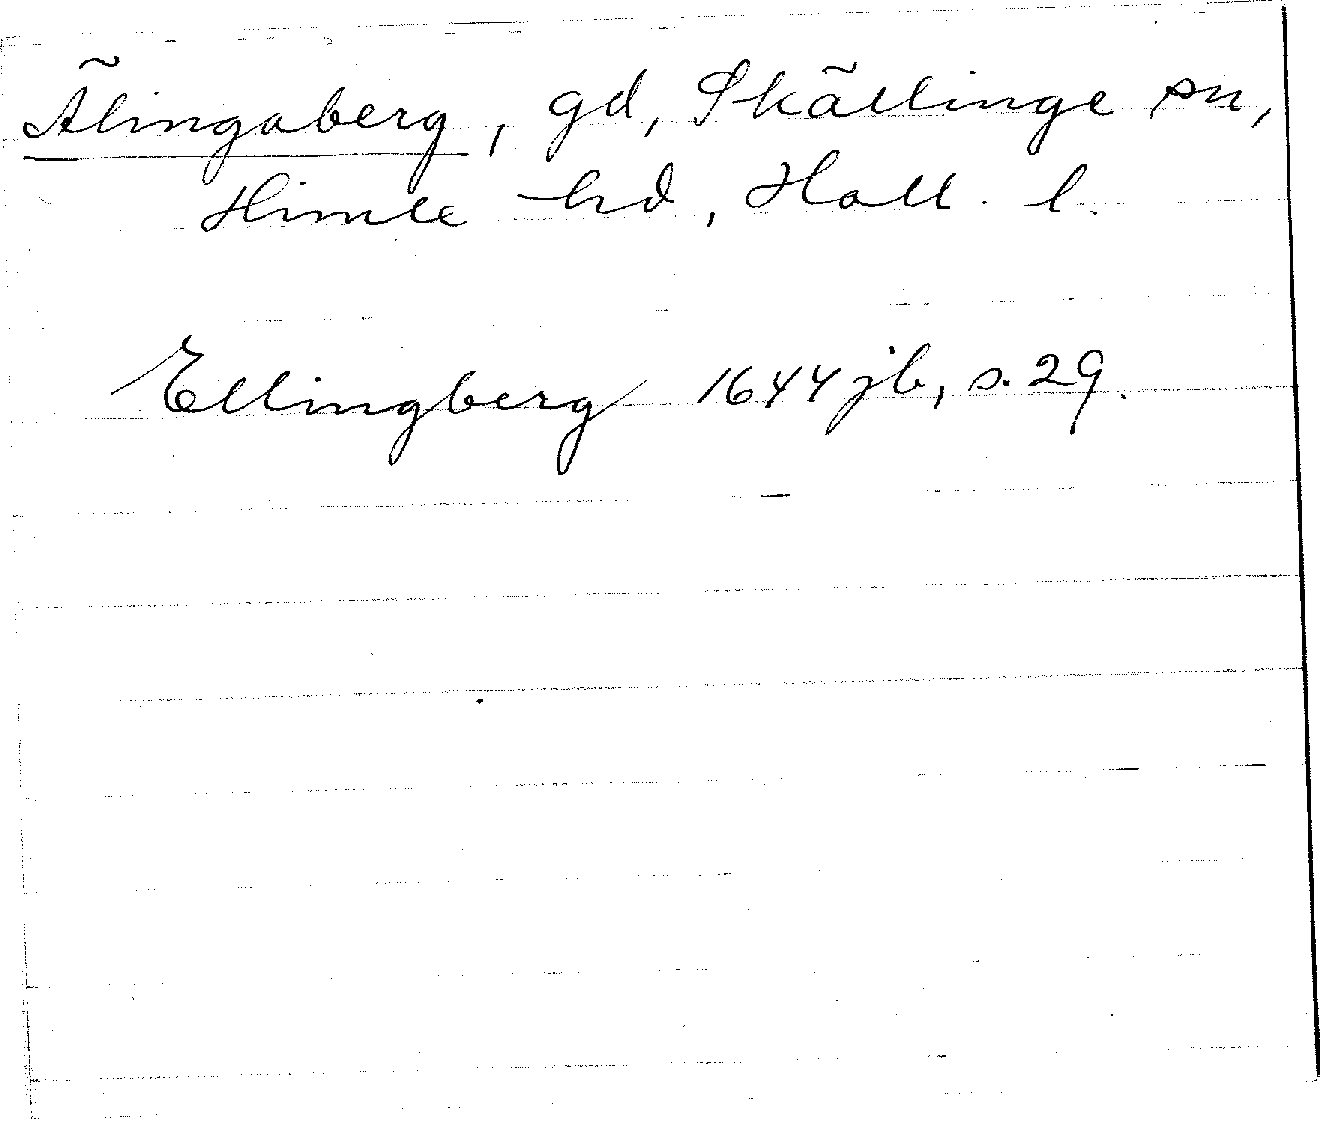 Älingaberg, gd, Skällinge sn,
Himle hd, Hall. l.
Ellingberg 1644 jb, s. 29.